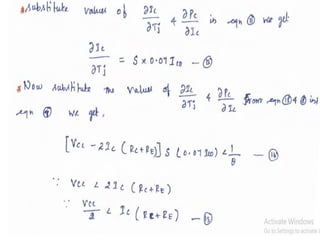 substitute values of ∂Ic/∂Tj & ∂Pc/∂Ic in eqn ⑧ we get
∂Ic/∂Tj = S x 0.07 Ico —
Now substitute the values of ∂Ic/∂Tj & ∂Pc/∂Ic from eqn & in
eqn we get,
[Vcc - 2Ic (Rc+RE)] S (0.07 Ico) < 1/θ —
∵ Vcc < 2Ic (Rc+RE)
∵ Vcc/2 < Ic (Rc+RE) —
Activate Windows
Go to Settings to activate